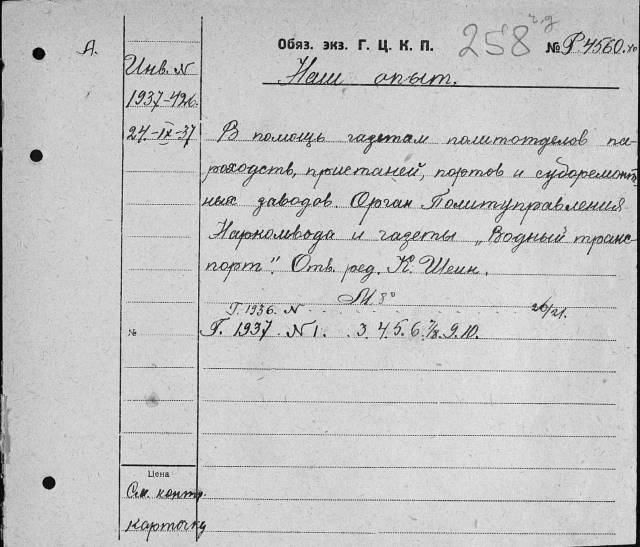 А.
Обяз. экз. Г. Ц. К. П.
258 ч.д
№ Р4560.
Инв. N
1937-426.
24.-IX-37
Наш опыт.
В помощь газетам политотделов па-
роходств, пристаней, портов и судоремонт-
ных заводов. Орган Политуправления
Наркомвода и газеты „Водный транс-
порт". Отв. ред. К. Шеин.
М 8°
Г. 1936. N 20/21.
№
Г. 1937 N 1. 3. 4. 5. 6. 7/8. 9. 10.
Цена
См. контр.
карточку